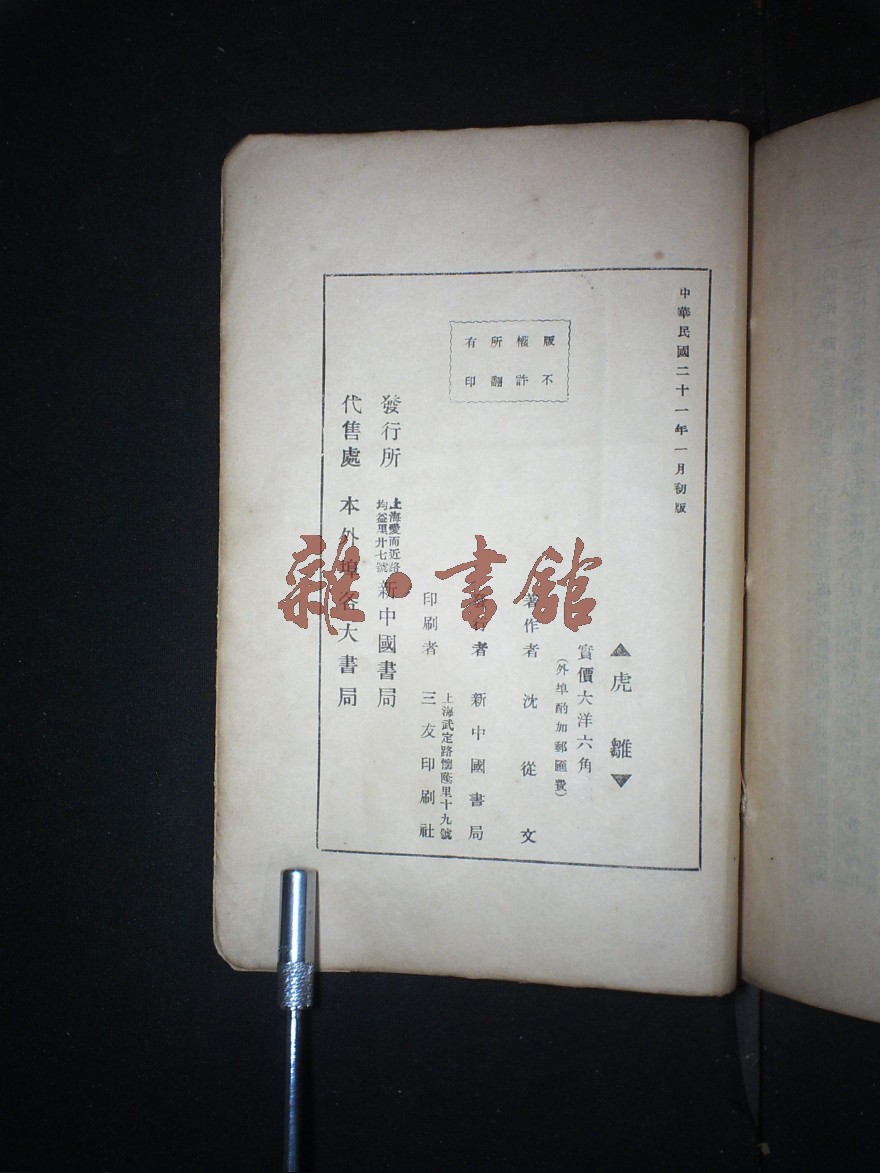 中華民國二十一年一月初版
▲虎雛▼
實價大洋六角
(外埠酌加郵匯費)
版權所有
不許翻印
著作者 沈從文
發行者 新中國書局
印刷者 上海武定路懷隱里十九號 三友印刷社
發行所 上海愛而近路均益里廿七號 新中國書局
代售處 本外埠各大書局
雜·書館